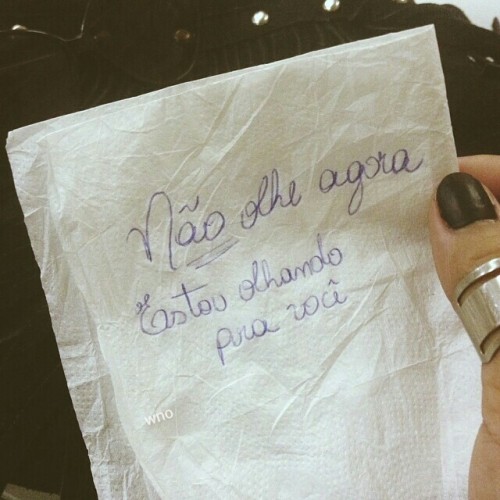 Não olhe agora
Estou olhando
pra você
who